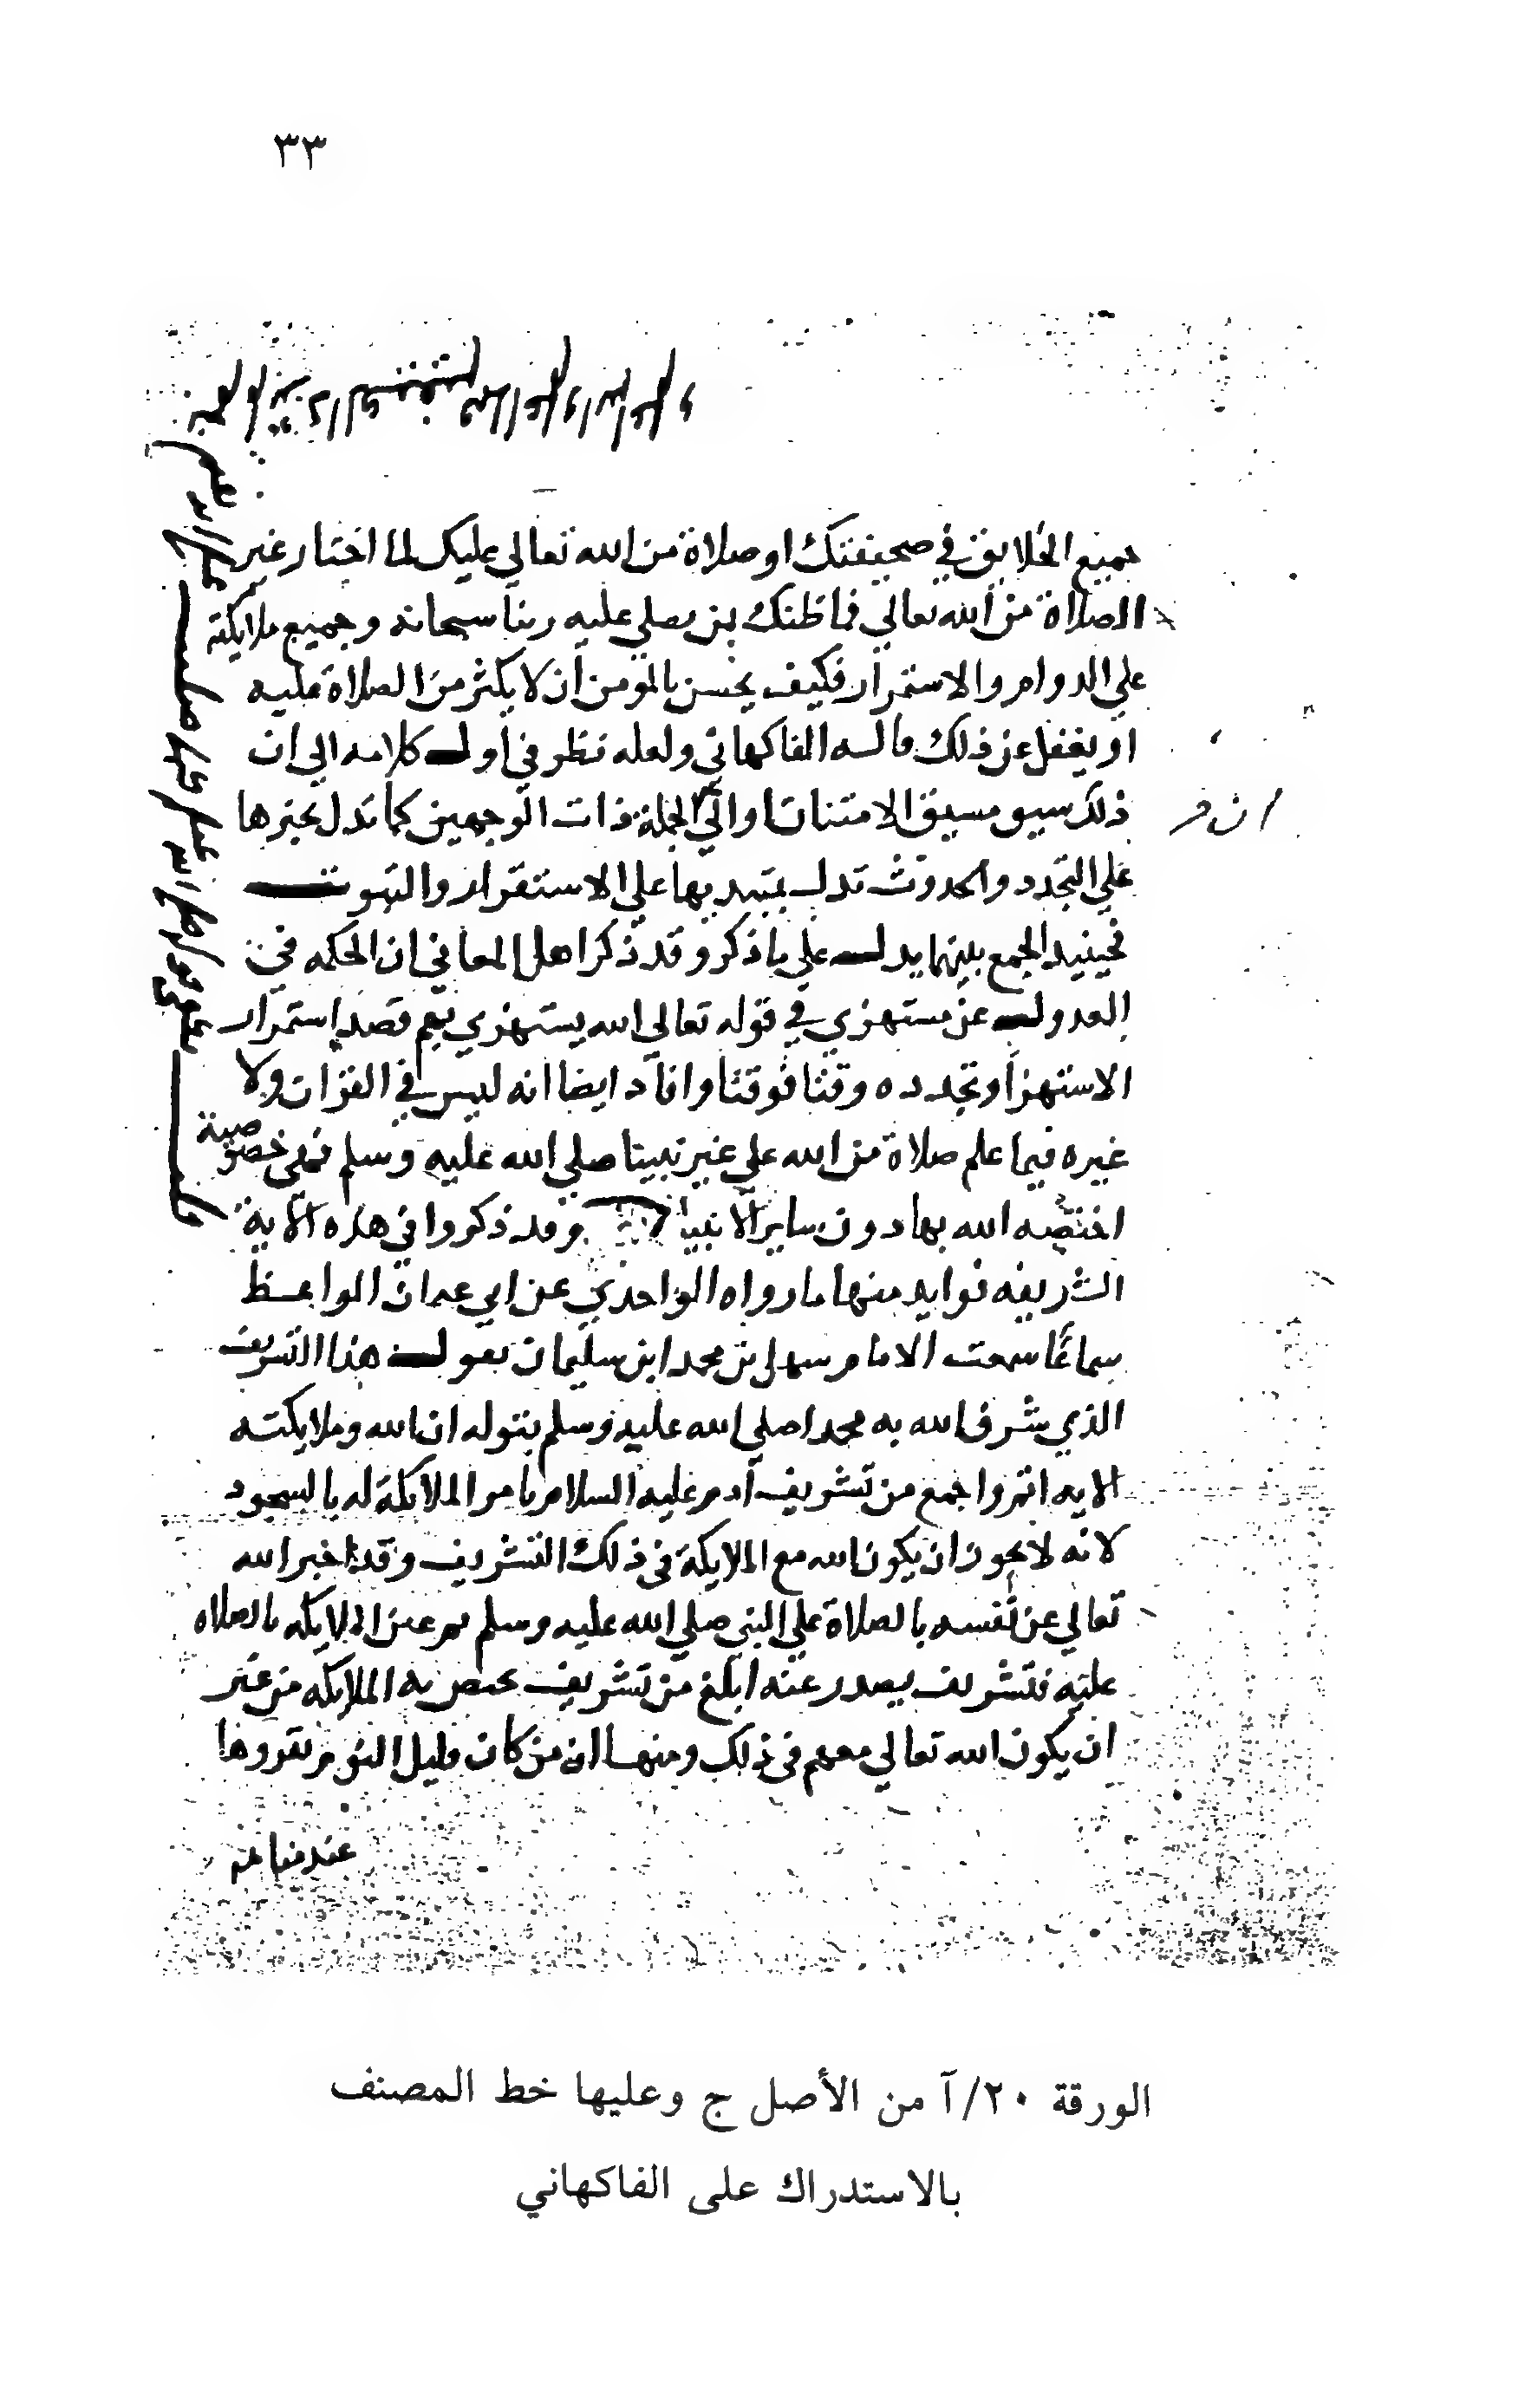 ٣٣
جميع الخلايق في صحيفتك او صلاة من الله تعالي عليك لما اختار غير
الصلاة من الله تعالي فما ظنك بمن يصلي عليه ربنا سبحانه وجميع ملايكته
علي الدوام والاستمرار فكيف يحسن بالمومن ان لا يكثر من الصلاة عليه
او يغفل عن ذلك قاله الفاكهاني ولعله نظر في اول كلامه الي ان
ذلك سيق مسيق الامتنان والي الجملة ذات الوجهين كما تدل بخبرها
علي التجدد والحدوث تدل بمبتديها علي الاستقرار والثبوت
فحينيذ الجمع بينهما يدل علي ما ذكر وقد ذكر اهل المعاني ان الحكمه في
العدول عن مستهزي في قوله تعالي الله يستهزي بهم قصد استمرار
الاستهزا وتجدده وقتا فوقتا وافاد ايضا انه ليس في القران ولا
غيره فيما علم صلاة من الله علي غير نبينا صلي الله عليه وسلم فهي خصوصية
اختصه الله بها دون ساير الانبيا وقد ذكروا في هذه الاية
الشريفه فوايد منها ما رواه الواحدي عن ابي عثمان الواعظ
سماعًا سمعت الامام سهل بن محمد ابن سليمان يقول هذا التشريف
الذي شرف الله به محمدا صلي الله عليه وسلم بقوله ان الله وملايكته
الايه اتم واجمع من تشريف آدم عليه السلام بامر الملايكة له بالسجود
لانه لا يجوز ان يكون الله مع الملايكة في ذلك التشريف وقد اخبر الله
تعالي عن نفسه بالصلاة علي النبي صلي الله عليه وسلم ثم عن الملايكه بالصلاه
عليه فتشريف يصدر عنه ابلغ من تشريف يختص به الملايكه من غير
ان يكون الله تعالي معهم في ذلك ومنها ان من كان قليل النوم يقروها
عند منامه
الورقة ٢٠/آ من الأصل ج وعليها خط المصنف
بالاستدراك على الفاكهاني